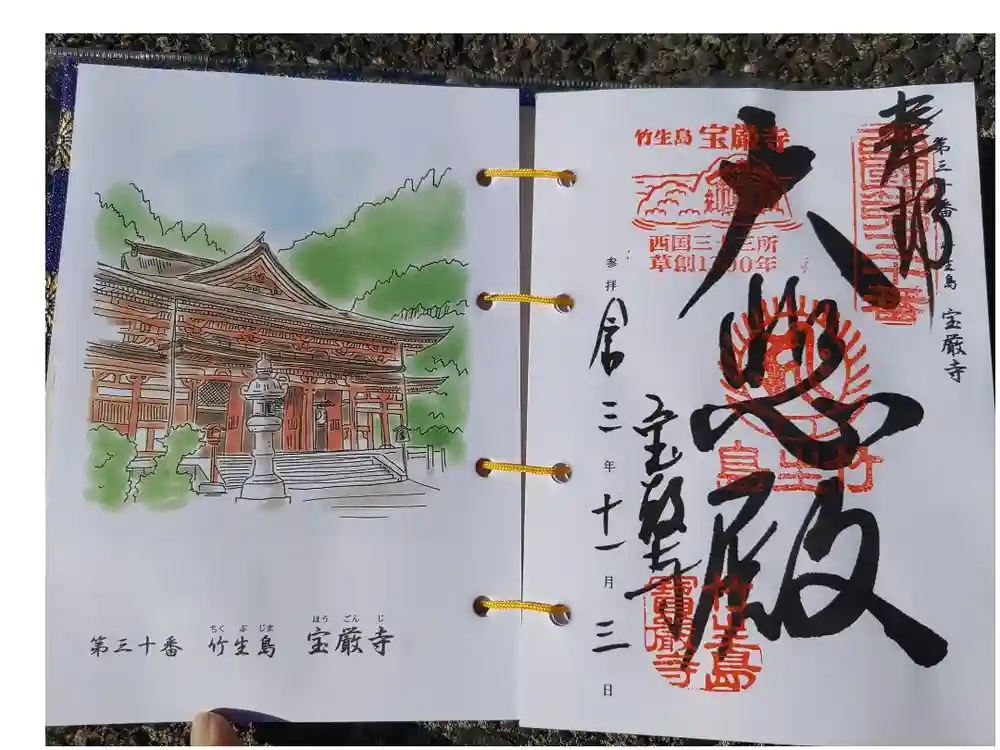 第三十番 竹生島 宝厳寺
ちく ぶ じま ほう ごん じ
奉拝
第三十番 竹生島 宝厳寺
大悲殿
竹生島 宝厳寺
西国三十三所
草創1300年
竹生島
宝厳寺
竹生島
寶嚴寺
参拝 令和三年十一月三日